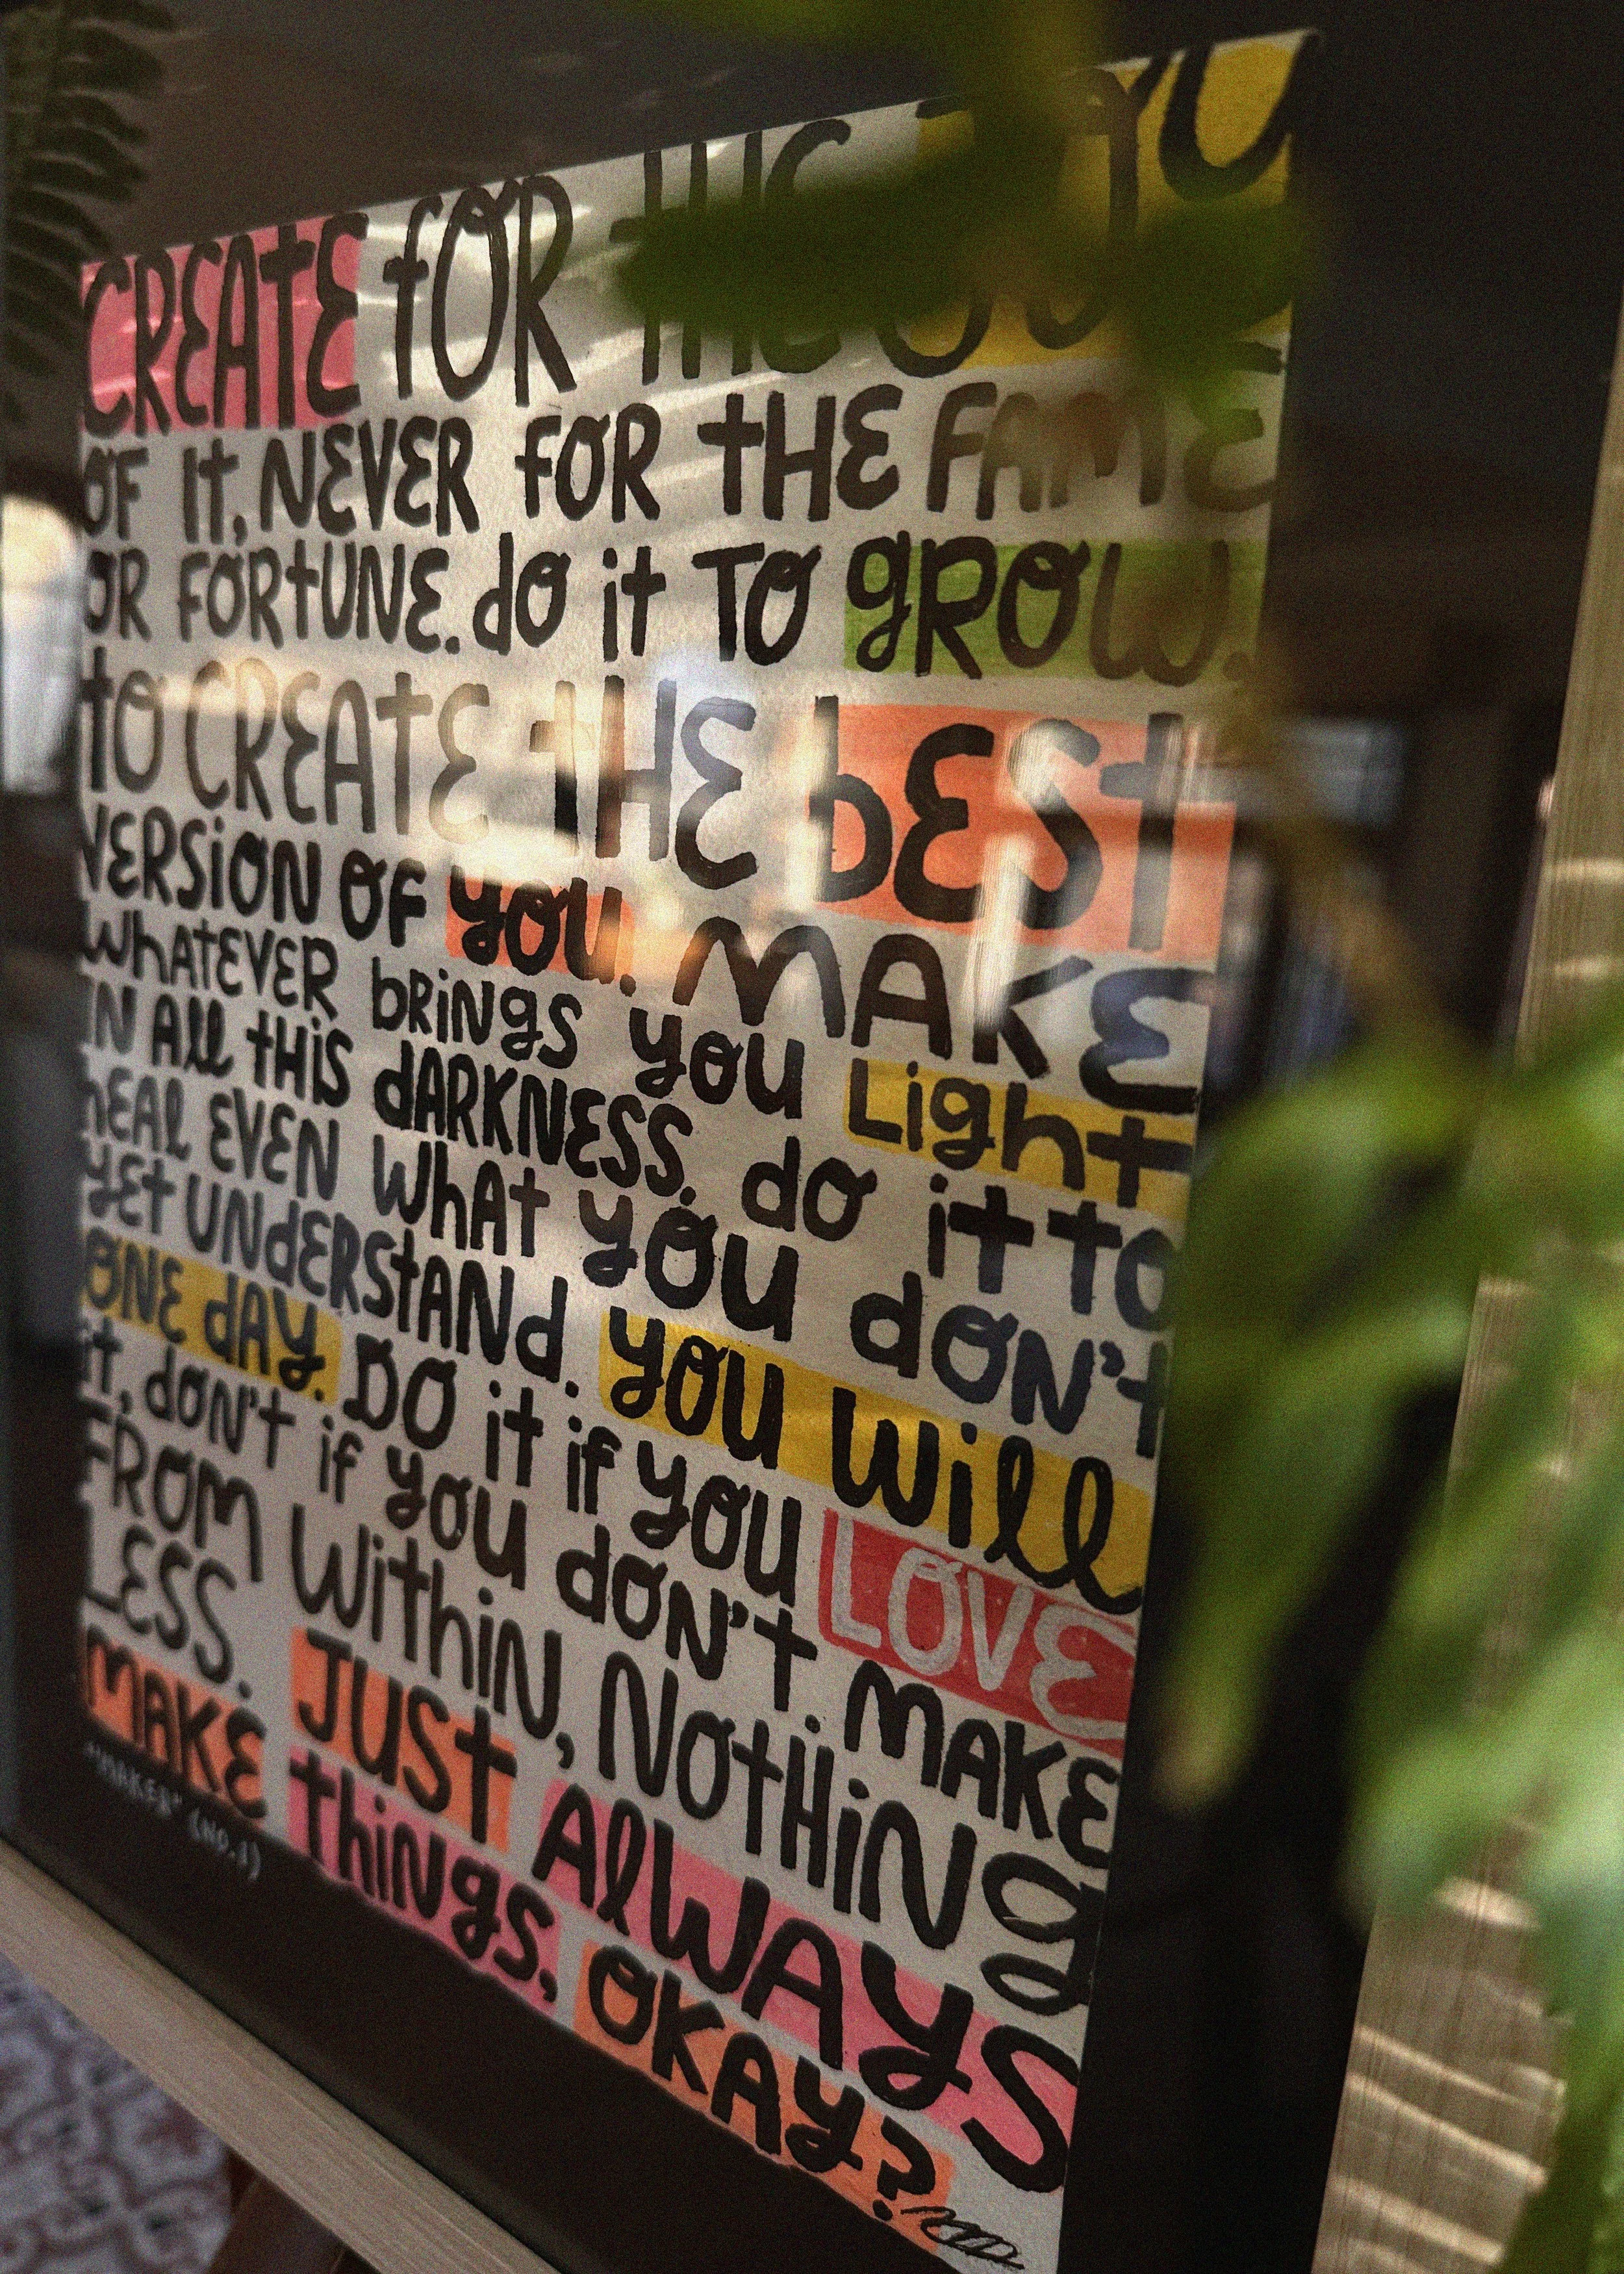 CREATE FOR THE JOY
OF IT, NEVER FOR THE FAME
OR FORTUNE. do it TO gROW.
to CREATE tHE bEST
VERSION OF you. MAKE
WhATEVER bRINgS you Light
IN All tHIS dARKNESS. do it to
hEAl EVEN WhAt you dON't
yEt UNdERStANd. you Will
ONE dAy. DO it if you LOVE
it, dON't if you dON't. MAKE
FROM WithiN, NOtHiNg
LESS. JUST AlWAyS
MAKE thiNgS, OKAy?
"MAKER" (NO.1)